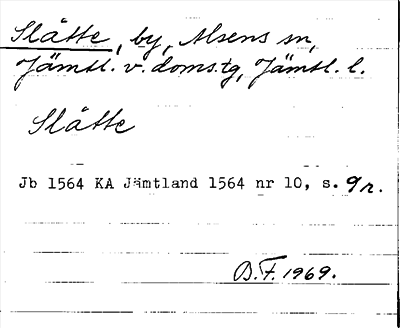 Slåtte, by, Alsens sn,
Jämtl. v. doms.tg, Jämtl. l.
Slåtte
Jb 1564 KA Jämtland 1564 nr 10, s. 9r.
B.F. 1969.